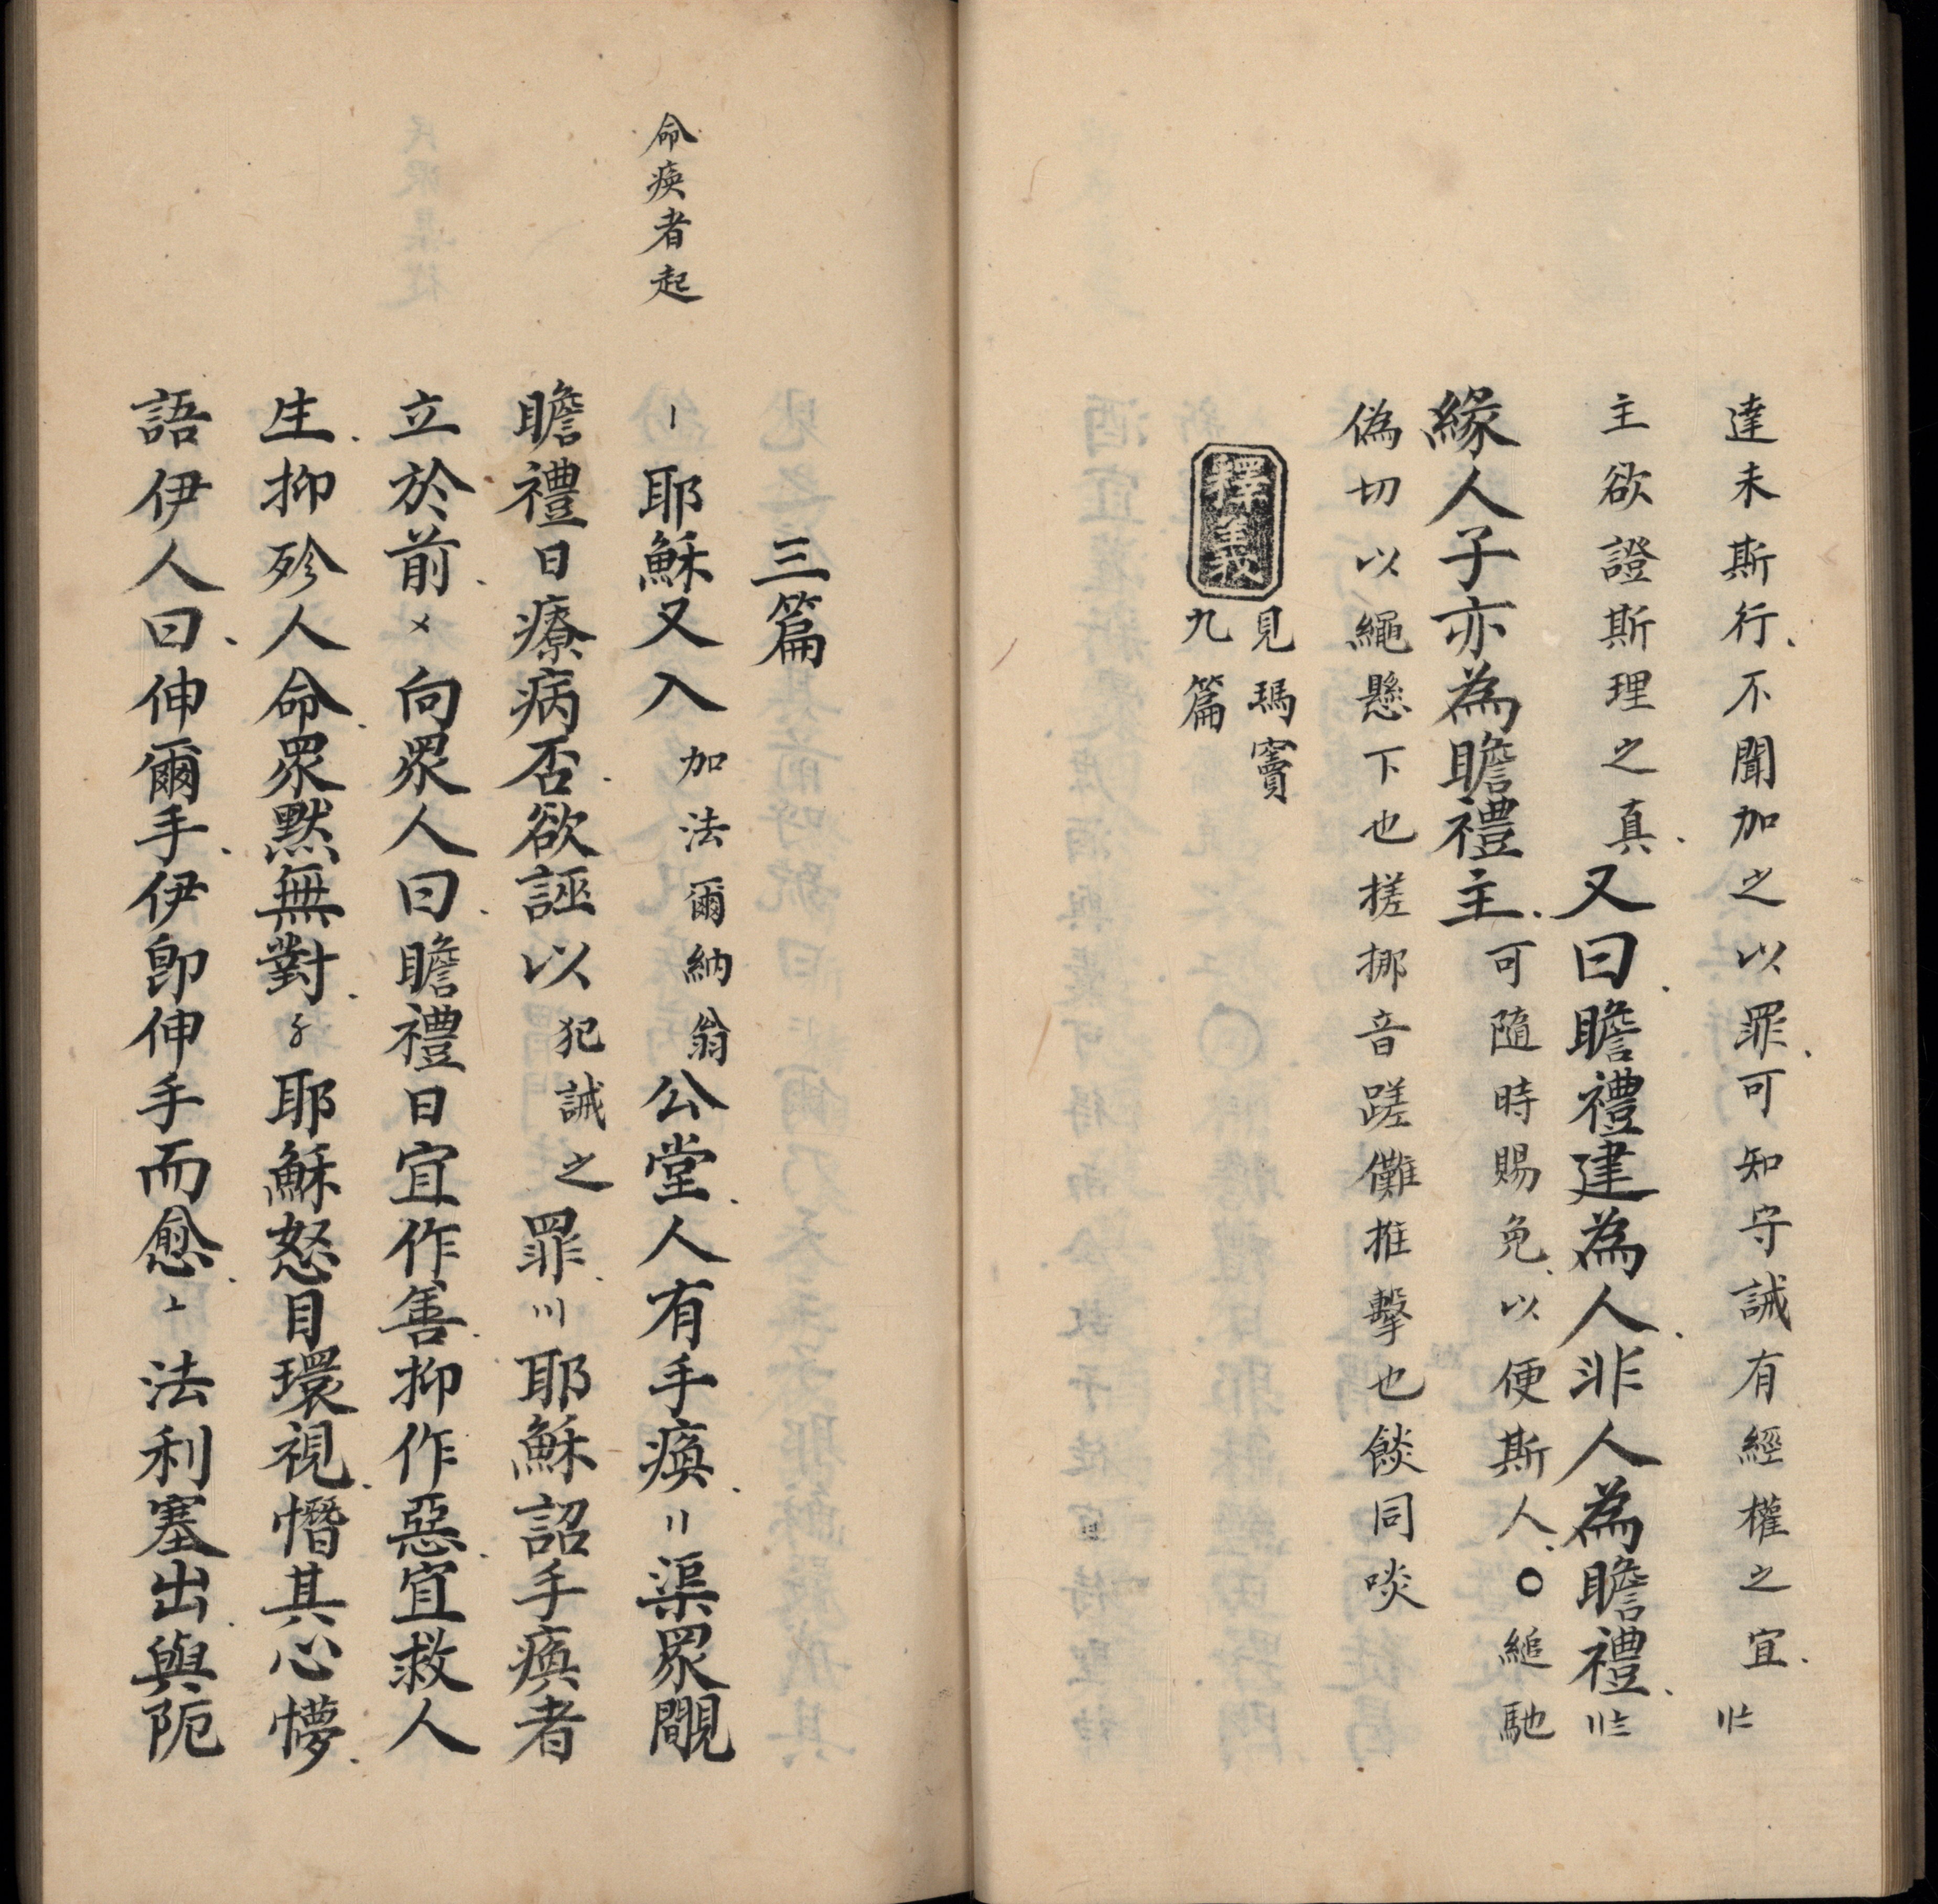 達未斯行、不聞加之以罪、可知守誡有經權之宜、〢〧
主欲證斯理之真、又曰、瞻禮建為人、非人為瞻禮、〣〧
緣人子亦為瞻禮主、可隨時賜免、以便斯人、〇縋馳
偽切以繩懸下也搓挪音蹉儺推擊也餤同啖
釋義 見瑪竇
九篇
三篇
命瘓者起
〡耶穌又入加法爾納翁公堂、人有手瘓、〢渠眾瞷
瞻禮日療病否、欲誣以犯誡之罪、〣耶穌詔手瘓者
立於前、〤向眾人曰、瞻禮日宜作善、抑作惡、宜救人
生、抑殄人命、眾默無對、〥耶穌怒目環視、憯其心懜、
語伊人曰、伸爾手、伊卽伸手而愈、〦法利塞出、與阨